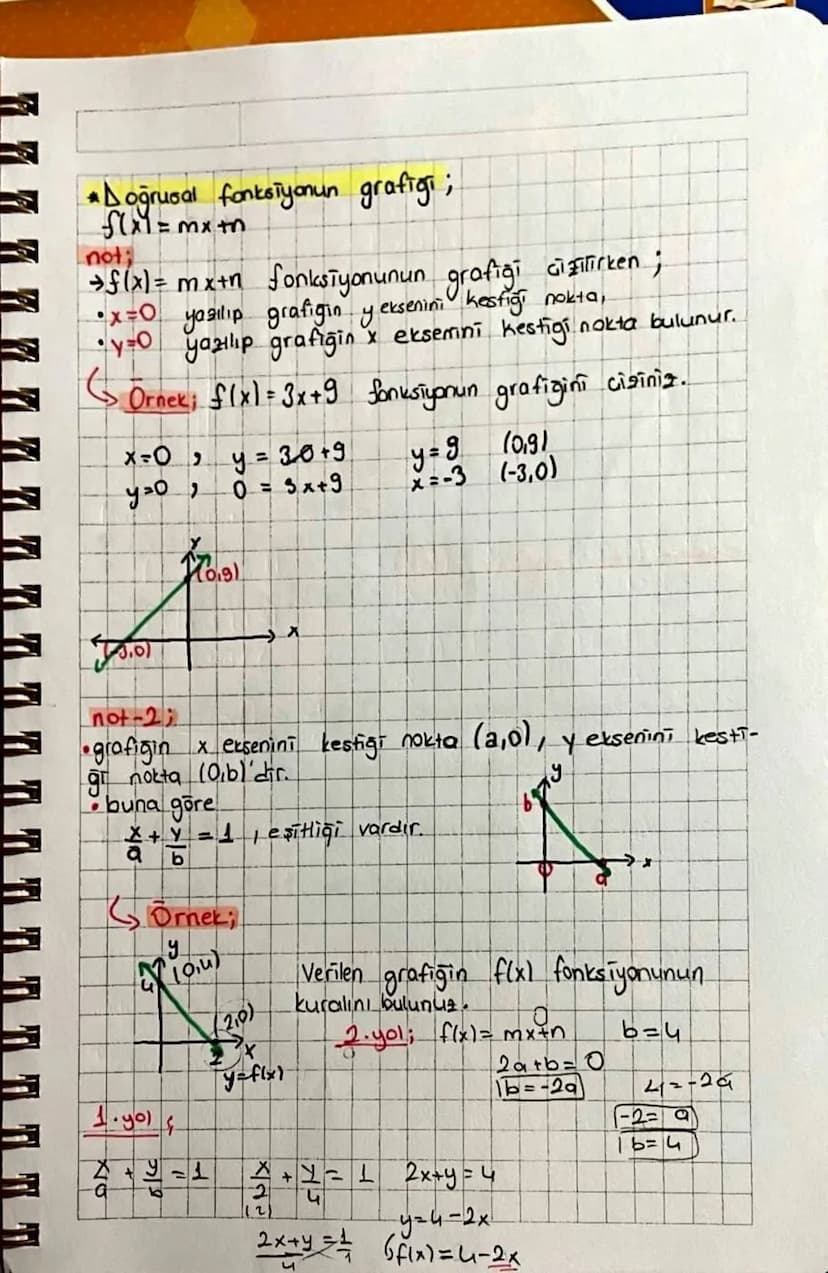 * Doğrusal fonksiyonun grafiği ;
f(x) = mx+n
not;
→ f(x) = mx+n fonksiyonunun grafiği çizilirken ;
• x=0 yazılıp grafiğin y eksenini kestiği nokta,
• y=0 yazılıp grafiğin x eksenini kestiği nokta bulunur.
Örnek; f(x) = 3x+9 fonksiyonun grafiğini çiziniz.
x=0 , y = 3.0+9 y = 9 (0,9)
y=0 , 0 = 3x+9 x = -3 (-3,0)
y
(0,9)
x
(-3,0)
not-2;
• grafiğin x eksenini kestiği nokta (a,0), y eksenini kesti-
ği nokta (0,b)'dir.
y
• buna göre
b
x/a + y/b = 1 , eşitliği vardır.
x
0
a
Örnek;
y
4 (0,4)
(2,0)
2 x
y=f(x)
Verilen grafiğin f(x) fonksiyonunun
kuralını bulunuz.
2.yol; f(x) = mx+n b=4
0
2a+b=0
b=-2a 4=-2a
-2=a
b=4
1.yol ;
x/a + y/b = 1 x/2 + y/4 = 1 2x+y=4
(2)
y=4-2x
2x+y/4 = 1/1 f(x)=4-2x